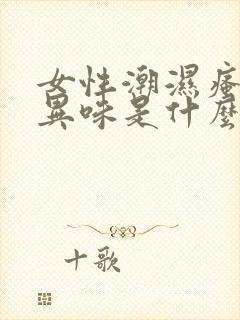 女性潮濕瘙
異味是什麼
十歌